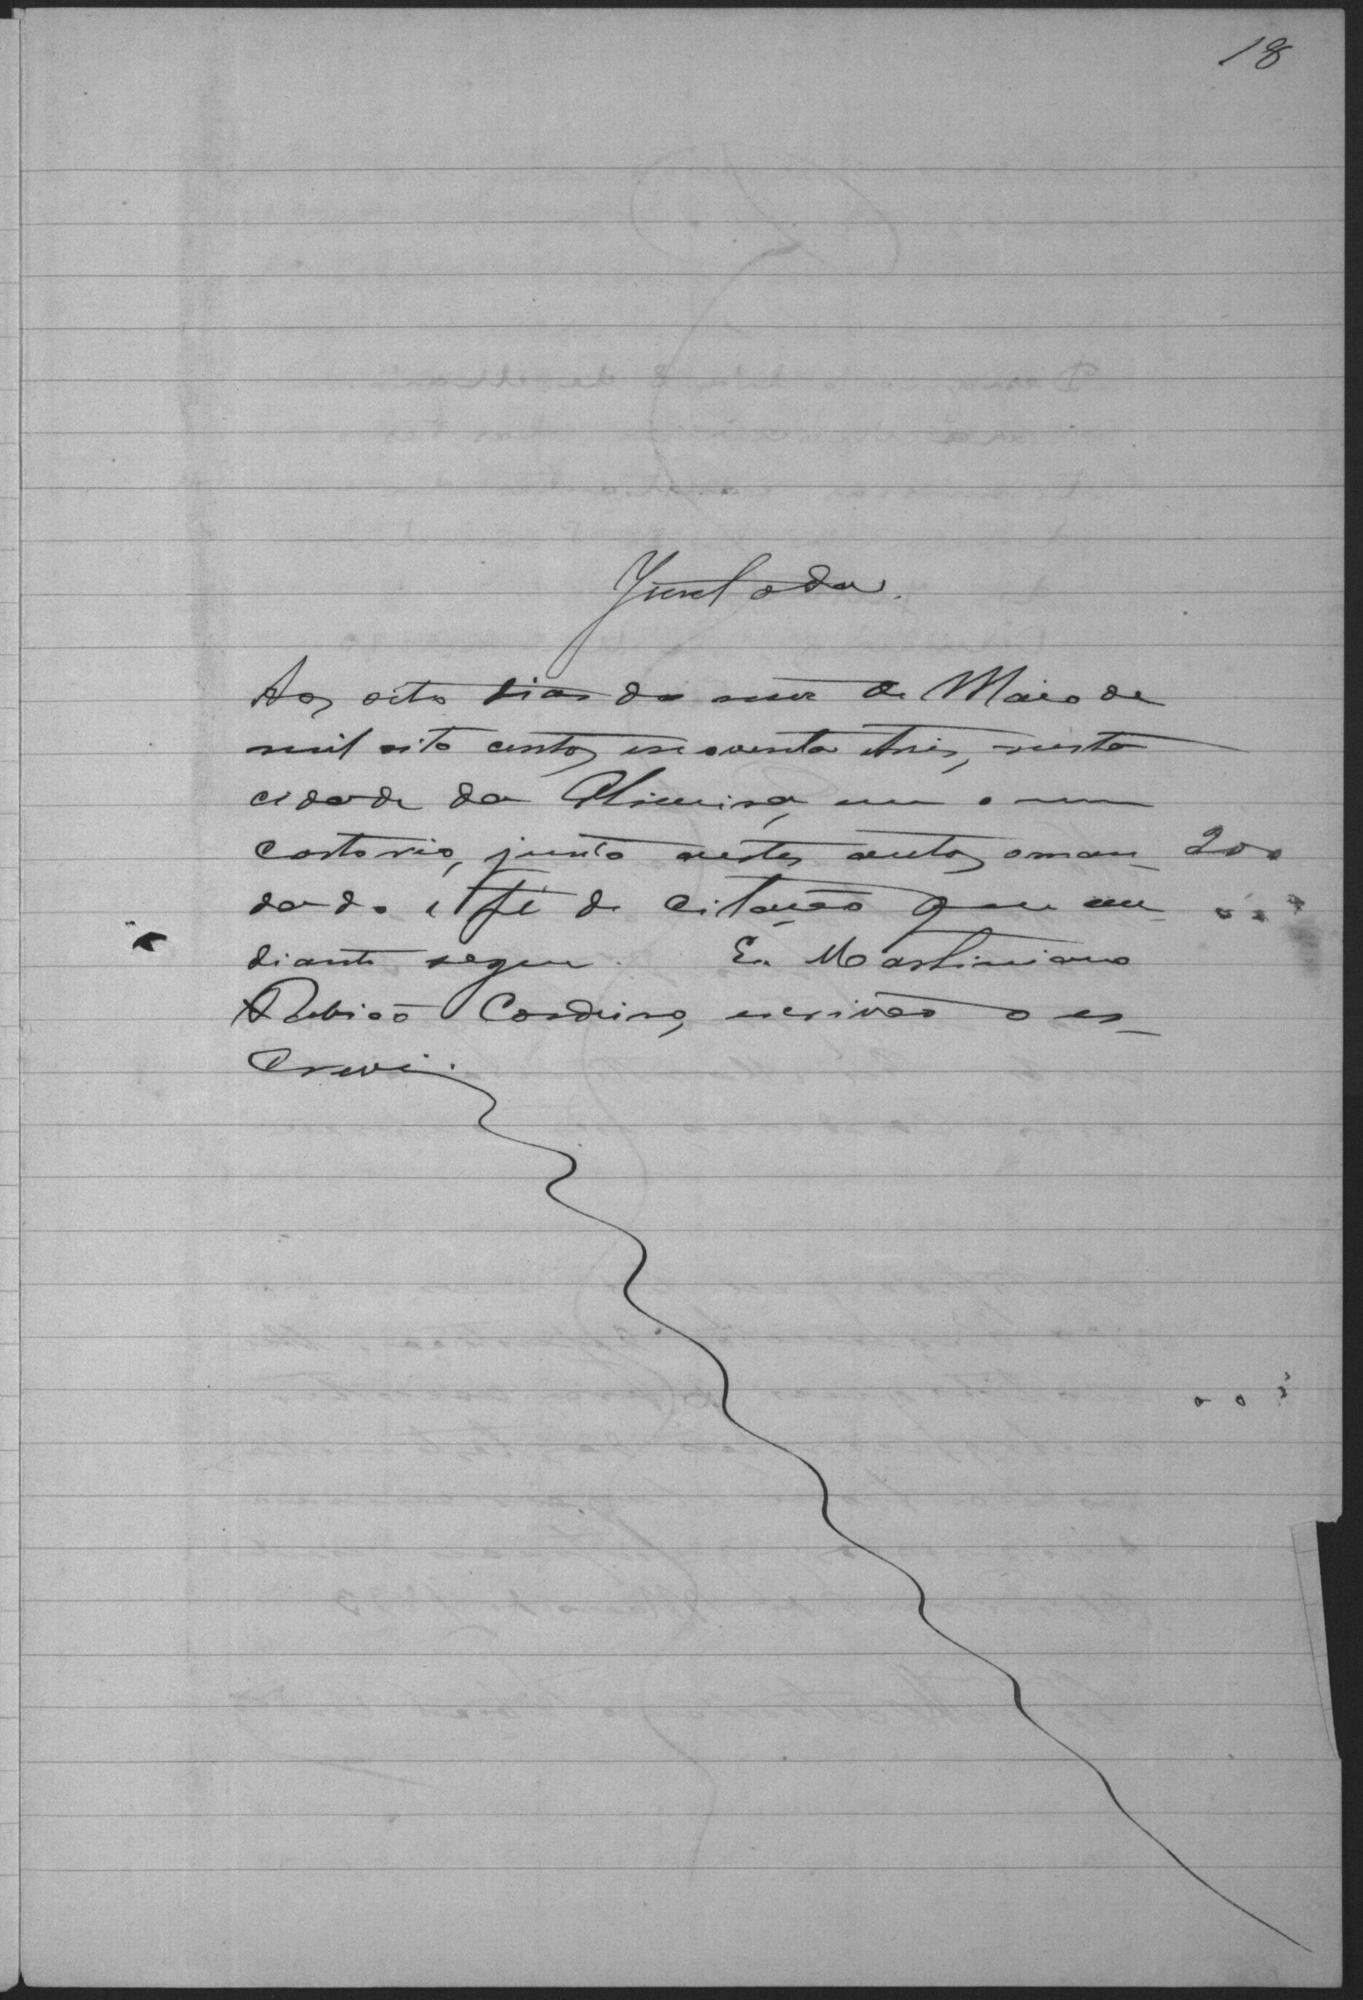 18
Juntada.
Aos oito dias do mez de Maio de
mil oito centos e noventa e tres, nesta
cidade da Limeira, em o meu
cartorio, junto nestes autos o man_
dado e fé de citação que em_
diante segue. Eu Martiniano
Rubião Cordeiro, escrivão o es_
crevi.
200